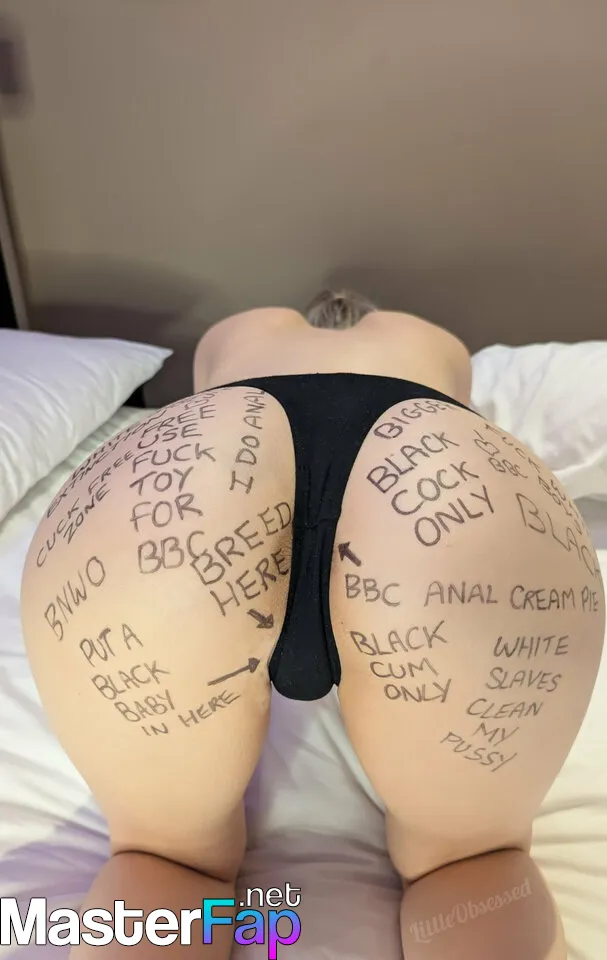 FREE
USE
FUCK
TOY
FOR
BBC
I DO ANAL
CUCK FREE
ZONE
BREED
HERE
BNWO
PUT A
BLACK
BABY
IN HERE
BIGGER
BLACK
COCK
ONLY
BBC
BLAC
BBC ANAL CREAM PIE
BLACK
CUM
ONLY
WHITE
SLAVES
CLEAN
MY
PUSSY
LittleObsessed
MasterFap.net